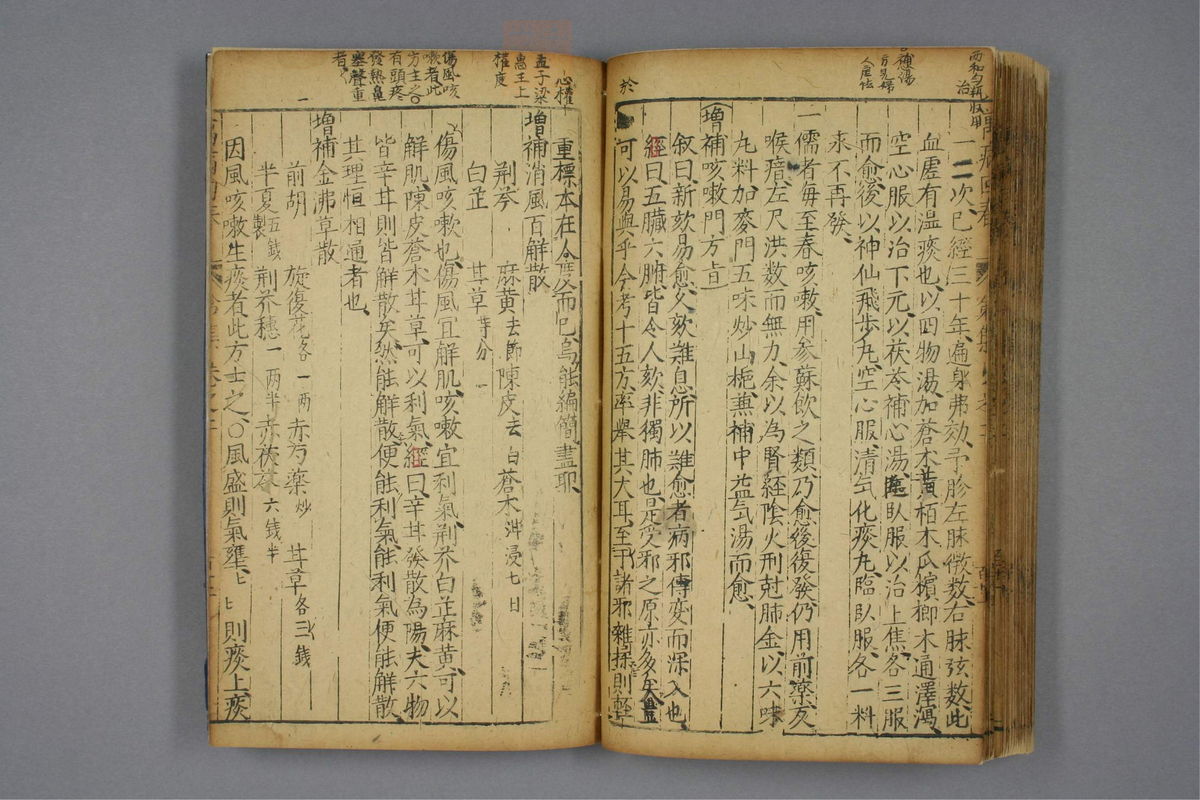 一二次已經三十年遍身弗効予胗左脉微数右脉弦数此
血虚有温痰也以四物湯加蒼木黄栢木瓜檳榔木通澤瀉
空心服以治下元以茯苓補心湯臨臥服以治上焦各三服
而愈後以神仙飛歩丸空心服清气化痰丸臨臥服各一料
求不再發
一儒者毎至春咳嗽用參蘇飲之類乃愈後復發仍用前藥反
喉瘖左尺洪数而無力余以為腎經陰火刑尅肺金以六味
丸料加麥門五味炒山梔兼補中益气湯而愈
増補咳嗽門方
叙曰新欬易愈久欬難息所以難愈者病邪傳変而深入也
經曰五臓六腑皆令人欬非獨肺也是受邪之原亦多矣
可以易與乎今考十五方率舉其大耳至于諸邪雜揉則輕
重標本在人度而已烏能編簡盡耶
増補消風百解散
荆芥 麻黄去節 陳皮去白 蒼木泔浸七日
白芷 甘草等分
傷風咳嗽也傷風宜解肌咳嗽宜利氣荆芥白芷麻黄可以
解肌陳皮蒼木甘草可以利氣經曰辛甘發散為陽夫六物
皆辛甘則皆解散矣然能解散便能利氣能利氣便能解散
其理恒相通者也
増補金沸草散
前胡 旋復花各一两 赤芍薬炒 甘草各三錢
半夏製五錢 荆芥穂一两半 赤茯苓六錢半
因風咳嗽生痰者此方主之〇風盛則氣壅〻〻則痰上痰
治
補湯
方見婦
人虚怯
於
心權
孟子梁
惠王上
權度
傷風咳
嗽者此
方主之〇
有頭疼
發熱鼻
塞聲重
者